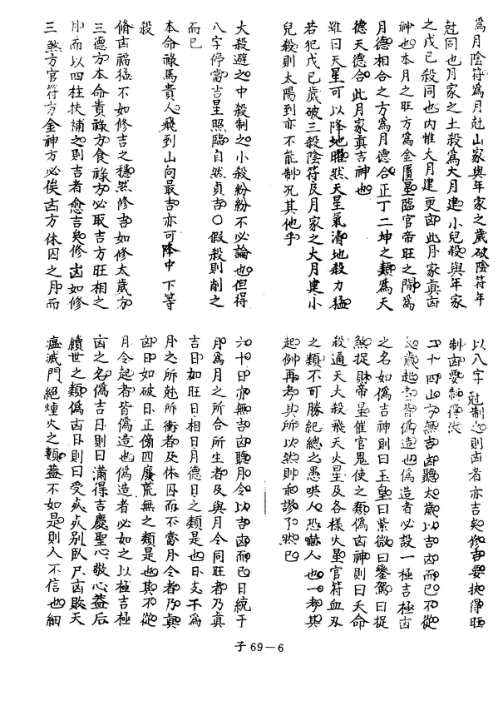 為月陰符為月尅山家與年家之歲破陰符年
尅同也月家之土殺為大月建小兒殺與年家
之戊己殺同也內惟大月建更凶此月家真凶
神也本月之旺方為金匱星臨官帝旺之間為
月德相合之方為月德合正丁二坤之類為天
德天德合此月家真吉神也
雖曰天星可以降地曜然天星氣清地殺力猛
若犯戊己歲破三殺陰符及月家之大月建小
兒殺則太陽到亦不能制况其他乎
大殺避之中殺制之小殺紛紛不必論也但得
八字停當吉星照臨自然貞吉 假殺則削之
而已
本命祿馬貴人飛到山向最吉亦可降中下等
殺
脩凶福猛不如修吉之穩然修吉如修太歲方
三德方本命貴祿方食祿方必取吉方旺相之
月而以四柱扶補之則吉者愈吉矣修凶如修
三煞方官符方金神方必俟凶方休囚之月而
以八字尅制之則凶者亦吉矣修吉要扶得旺
制凶要制得伏
二十四山方無吉凶聽太歲以吉凶而已不從
太歲起者皆偽造也偽造者必設一極吉極凶
之名如偽吉神則曰玉皇曰紫微曰鑾駕曰捉
煞捉財帝星催官鬼使之類偽凶神則曰天命
殺通天大殺飛天火星及各樣火星官符血刃
之類不可勝紀總之愚哄人恐嚇人也一考其
起例再考其所以然則亦謬了然已
六十日亦無吉凶聽月令以吉凶而已日統于
月為月之所合所生者及與月令同旺者乃真
吉日如旺日相日月德日之類是也日支不為
月之所尅所衝者及休囚而不當月令者乃真
凶日如破日正傷四廢荒無之類是也其不從
月令起者皆偽造也偽造者必如之以極吉極
凶之名偽吉日則曰滿得吉慶聖心敬心益后
續世之類偽凶日則曰受死死別臥尸凶敗天
瘟滅門絕煙火之類蓋不如是則人不信也細
子 69－6